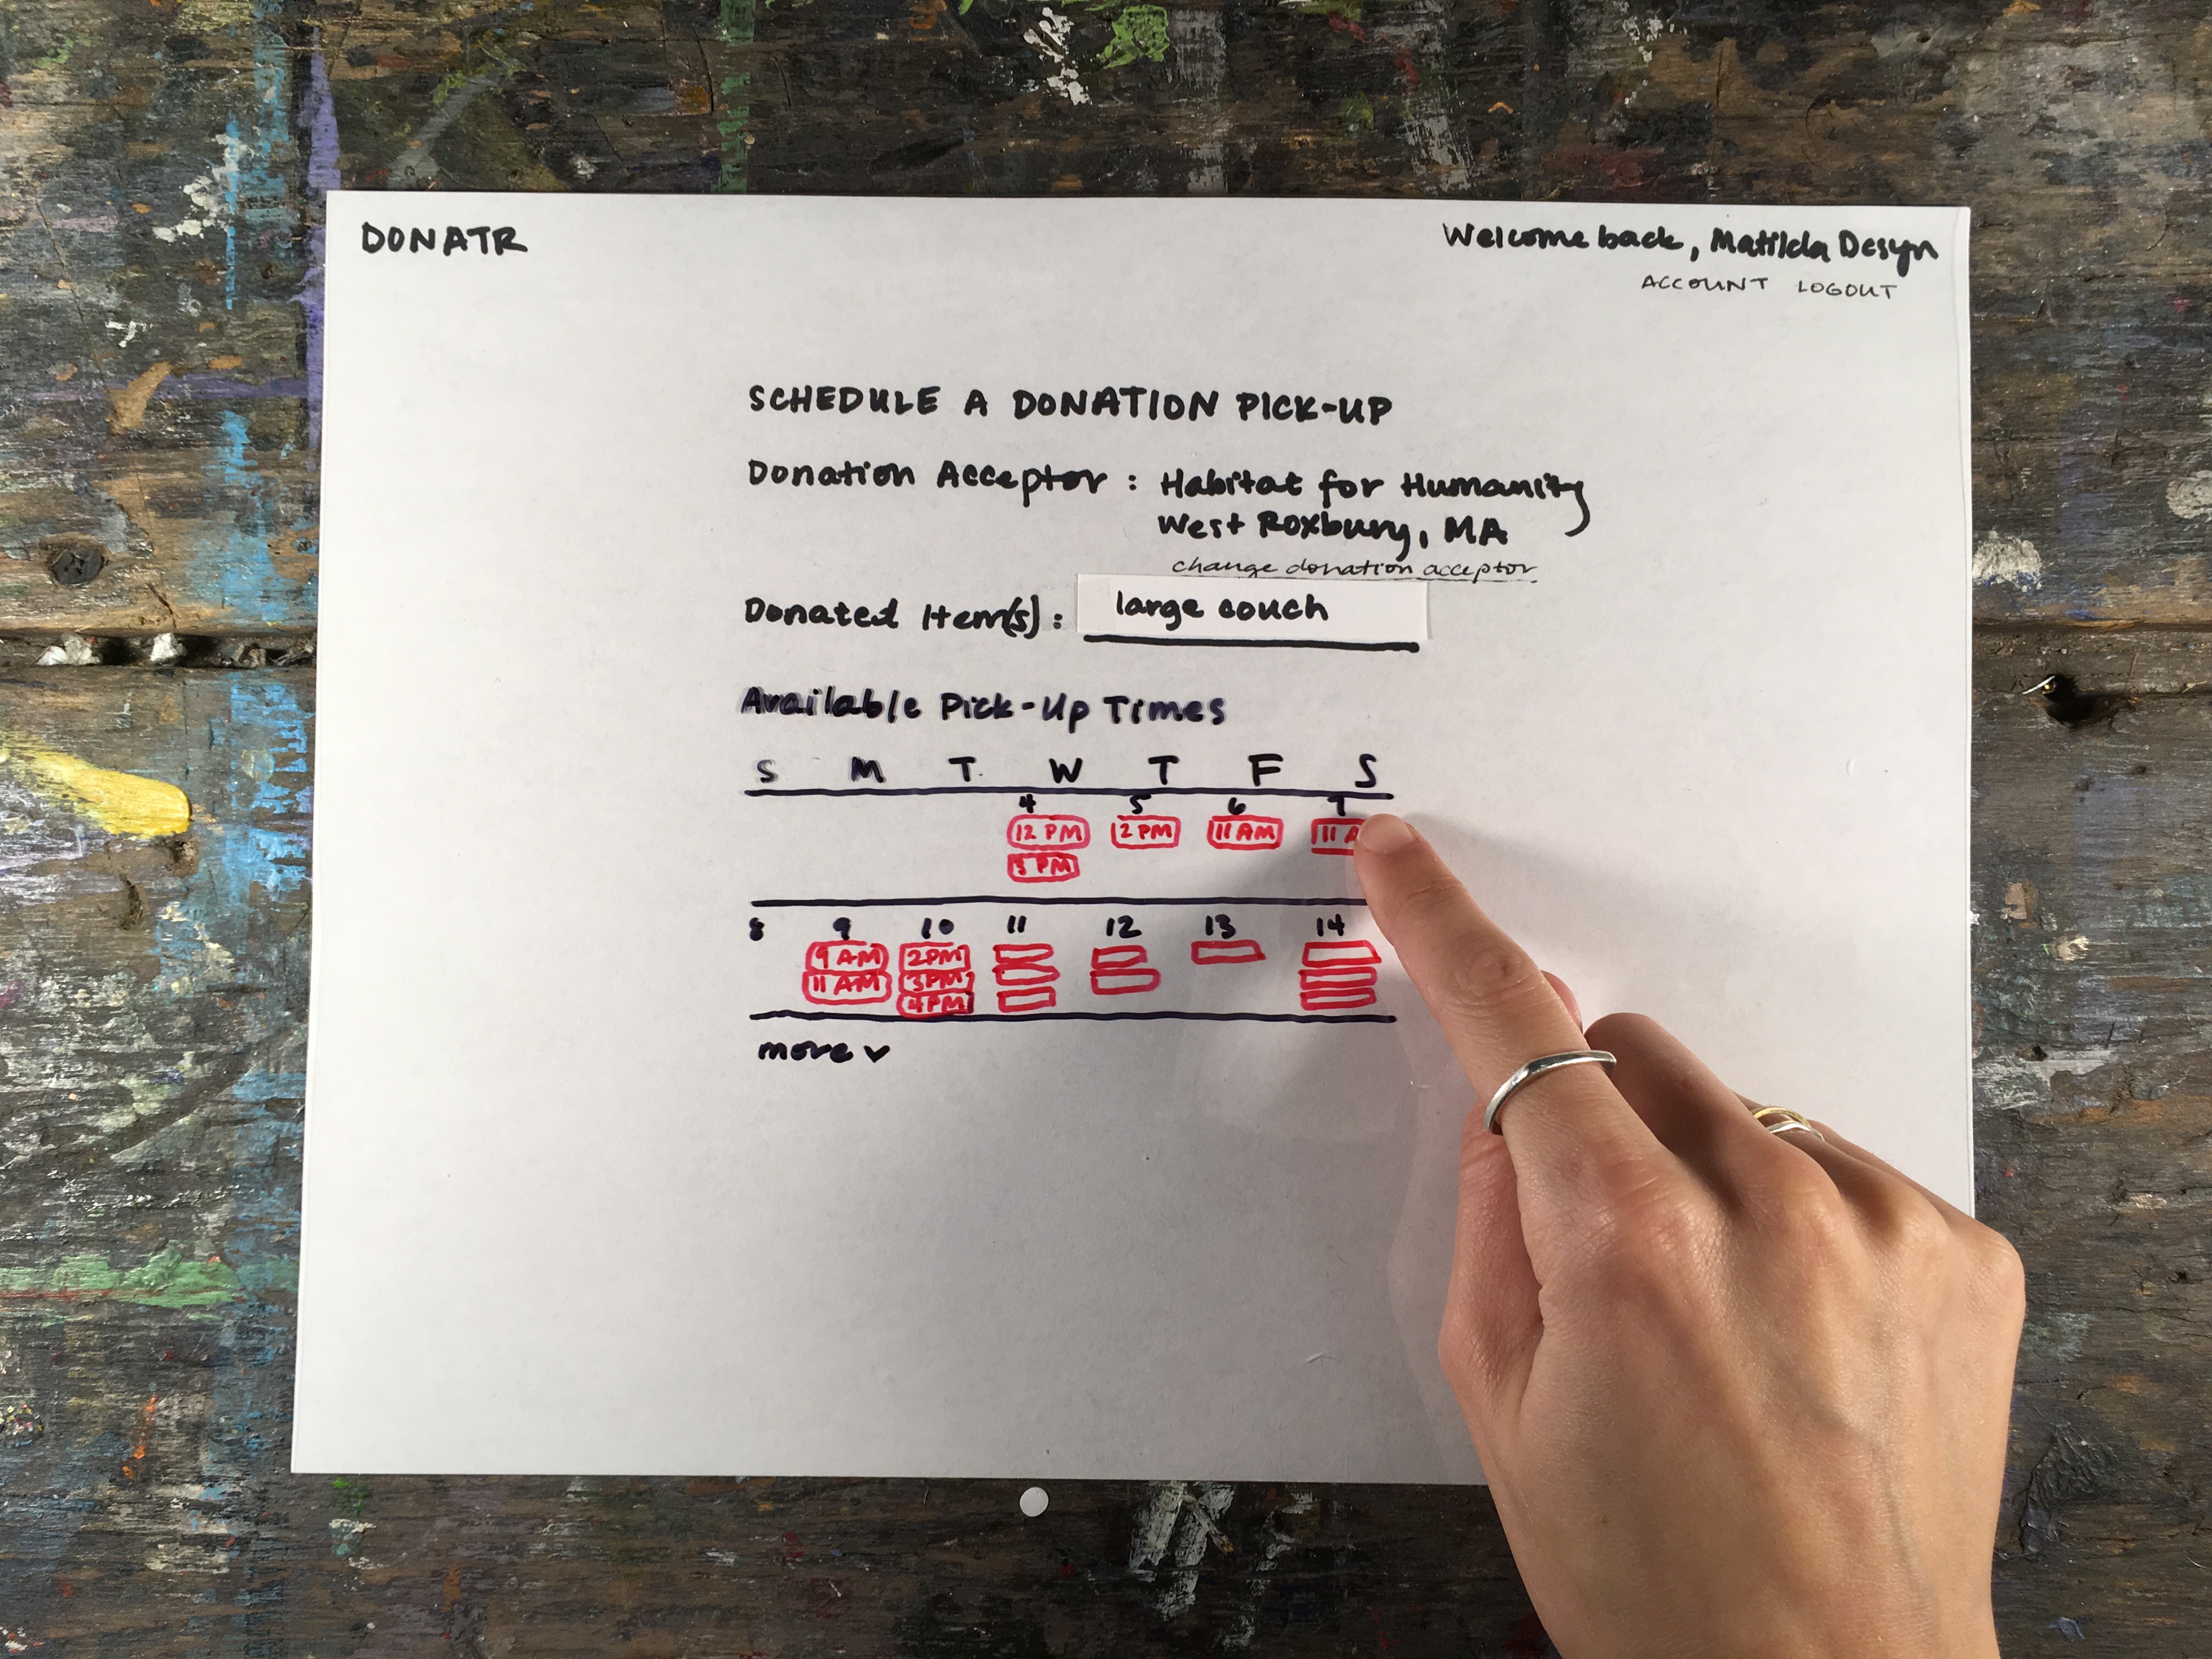 DONATR
Welcome back, Matilda Desyn
ACCOUNT LOGOUT
SCHEDULE A DONATION PICK-UP
Donation Acceptor: Habitat for Humanity
West Roxbury, MA
change donation acceptor
Donated Item(s): large couch
Available Pick-Up Times
S M T W T F S
4 5 6 7
12 PM 2 PM 11 AM 11 A
PM
8 9 10 11 12 13 14
9 AM 2PM
11 AM 3PM
4PM
more